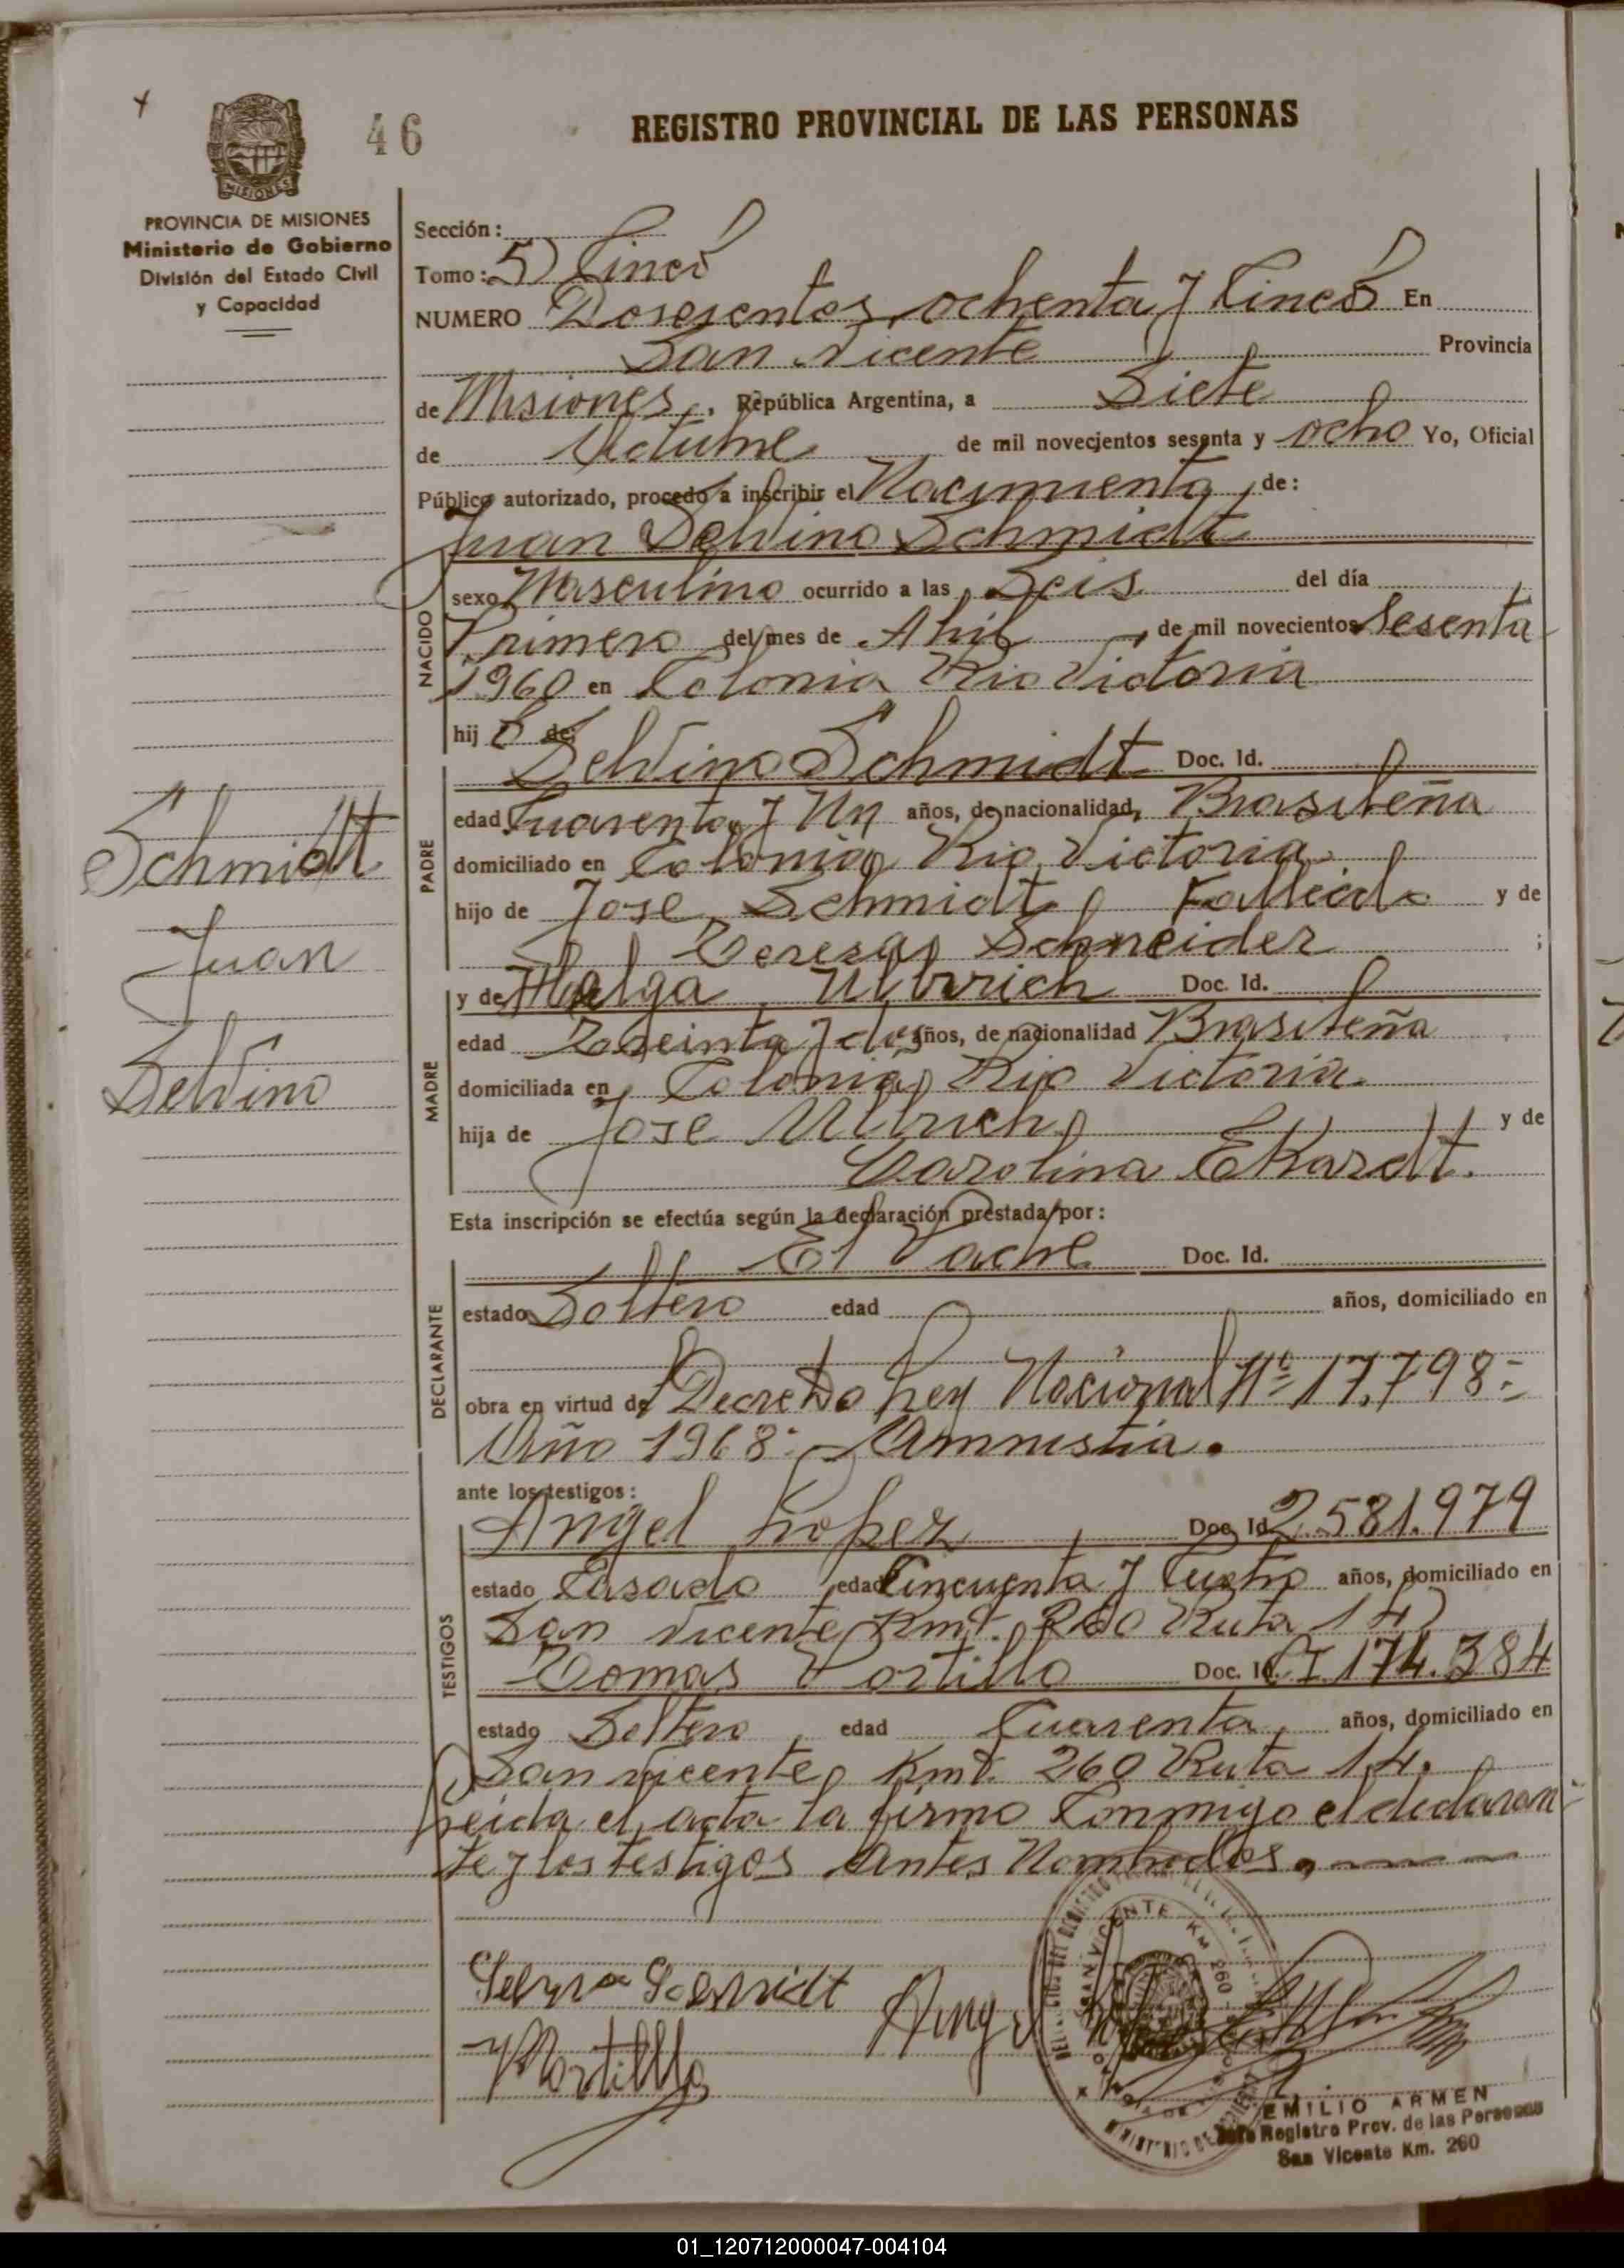 46
REGISTRO PROVINCIAL DE LAS PERSONAS
MISIONES
PROVINCIA DE MISIONES
Ministerio de Gobierno
División del Estado Civil
y Capacidad
Sección:
Tomo: 5) Cinco
NUMERO Dosesentos ochenta y Cinco En
San Vicente Provincia
de Misiones, República Argentina, a Siete
de Octubre de mil novecientos sesenta y ocho Yo, Oficial
Público autorizado, procedo a inscribir el Nacimiento, de:
Juan Selvino Schmidt
NACIDO
sexo Masculino ocurrido a las Seis del día
Primero del mes de Abril, de mil novecientos Sesenta
1960 en Colonia Rio Victoria
hijo de:
Selvino Schmidt Doc. Id.
PADRE
edad Cuarenta y Un años, de nacionalidad, Brasileña
domiciliado en Colonia Rio Victoria
hijo de Jose Schmidt Fallecido y de
Teresa Schneider ;
y de Helga Ullrrich Doc. Id.
MADRE
edad Treinta y dos años, de nacionalidad Brasileña
domiciliada en Colonia Rio Victoria
hija de Jose Ullrich y de
Carolina Ekardt.
Schmidt
Juan
Selvino
Esta inscripción se efectúa según la declaración prestada por:
El Padre Doc. Id.
DECLARANTE
estado Soltero edad años, domiciliado en
obra en virtud de Decreto Ley Nacional Nº 17.798=
Año 1968. Amnistia.
ante los testigos:
TESTIGOS
Angel Lopez Doc. Id. 2.581.979
estado Casado edad Cincuenta y Cuatro años, domiciliado en
San Vicente Kmt. 260 Ruta 14
Tomas Portillo Doc. Id. CI 174.384
estado Soltero edad Cuarenta años, domiciliado en
San Vicente Kmt. 260 Ruta 14.
Leida el acta la firmo Conmigo el declaran-
te y los testigos Antes Nombrados.
Selvino Schmidt
Angel
Portillo
SAN VICENTE KM 260
EMILIO ARMEN
Jefe Registro Prov. de las Personas
San Vicente Km. 260
01_120712000047-004104